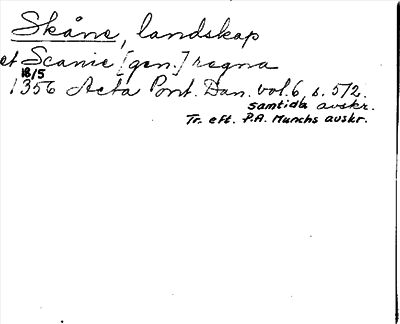 Skåne, landskap
et Scanie [gen.] regna
18/5
1356 Acta Pont. Dan. vol. 6, s. 572.
samtida avskr.
Tr. eft. P.A. Munchs avskr.